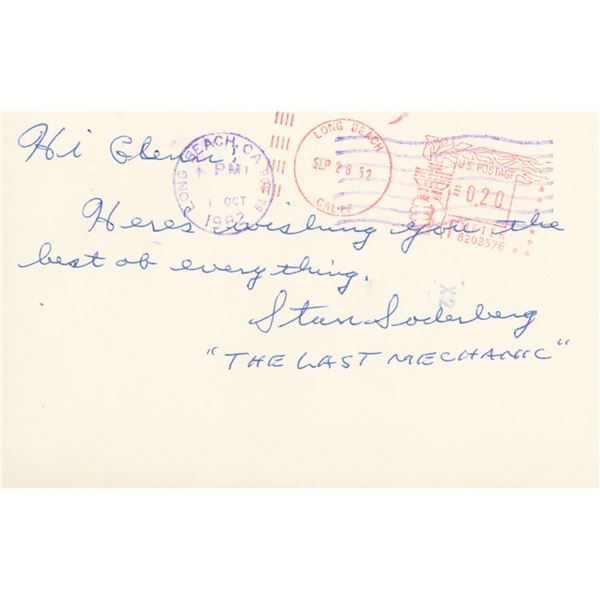 Hi Glenn,
LONG BEACH, CA
PM
1 OCT
1982
LONG BEACH
SEP 28 '82
CALIF
U.S. POSTAGE
0.20
METER
8203576
Heres wishing you the
best of everything.
X2
Stan Soderberg
"THE LAST MECHANIC"